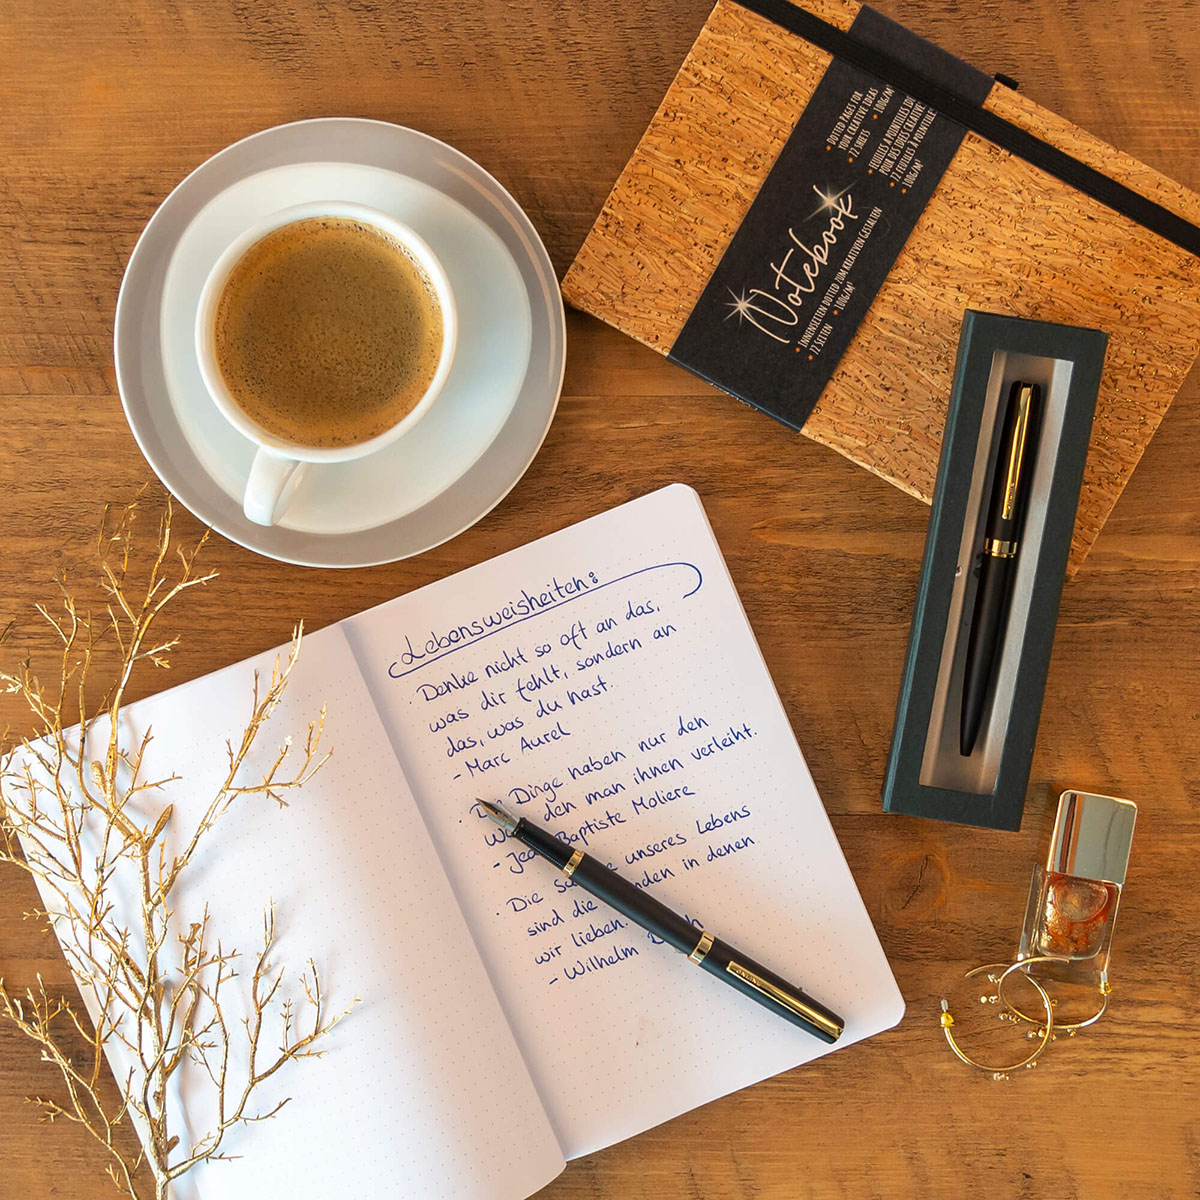 DOTTED PAGES FOR
YOUR CREATIVE IDEAS
72 SHEETS 100G/M²
FEUILLES À POINTILLÉS
POUR DES IDÉES
72 FEUILLES À
100G/M²
Notebook
INNENSEITEN DOTTED ZUM KREATIVEN GESTALTEN
72 SEITEN 100G/M²
Lebensweisheiten:
· Denke nicht so oft an das,
was dir fehlt, sondern an
das, was du hast.
- Marc Aurel
· Dinge haben nur den
den man ihnen verleiht.
- Baptiste Moliere
· Die unseres Lebens
sind die in denen
wir lieben.
- Wilhelm